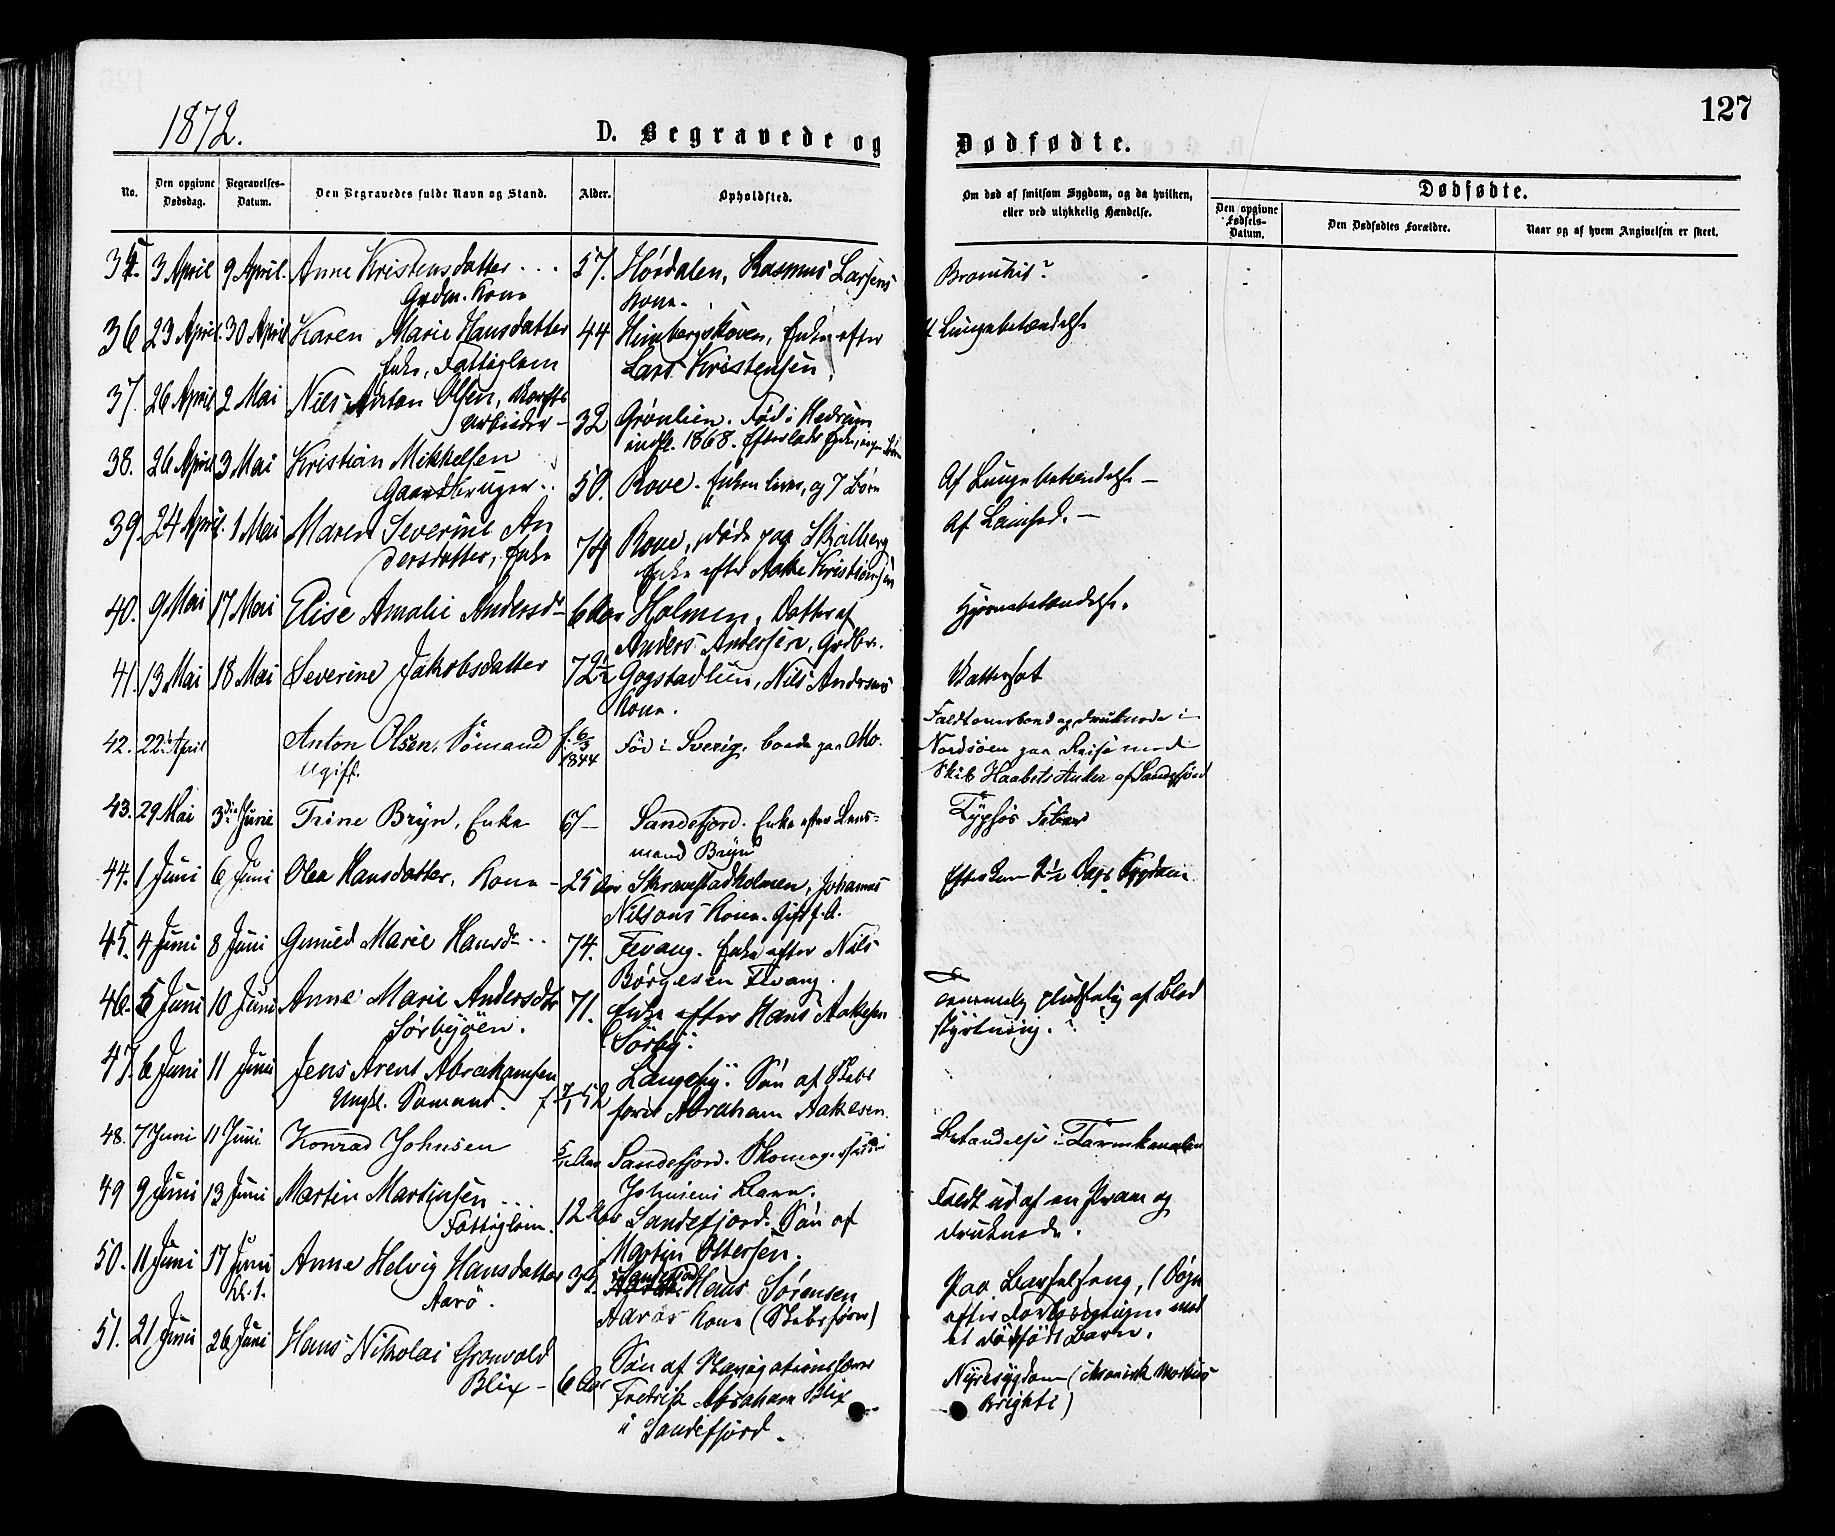 127
1872.
D. Begravede og Dødfødte.
No. Den opgivne Dødsdag. Begravelses-Datum. Den Begravedes fulde Navn og Stand. Alder. Opholdsted. Om død af smitsom Sygdom, og da hvilken, eller ved ulykkelig Hændelse. Dødfødte.
Den opgivne Fødsels-Datum. Den Dødfødtes Forældre. Naar og af hvem Angivelsen er skeet.
35. 3 April 9 April. Anne Kristensdatter ... 57. Hórdalen, Rasmus Larsens
Grdm. Kone Kone.
36 23 April 30 April Karen Marie Hansdatter 44 Himbergskoven, Enke efter Lungebetændelse
Enke, Fattiglem Lars Kristensen.
37. 26 April 2 Mai Nils Anton Olsen,
arbeider - 32 Grónlien. Fød i Hedrum
indfl. 1868. Efterlader Enke, ingen Børn
38. 26 April 3 Mai Kristian Mikkelsen
Gaardbruger.. 50. Rove. Enken lever, og 7 Børn Af Lungebetændelse -
39. 24 April. 1 Mai Maren Severine An
dersdatter, Enke 74 Rove, døde paa Skjelberg
Enke efter Aake Kristiansen
40. 9 Mai 17 Mai Elise Amalie Andersdr 6 Aar Holmen, Datter af Hjernebetændelse.
Anders Andersen, Grdbr.
41. 13 Mai 18 Mai Severine Jakobsdatter 72½ Gogstadlien, Nils Andersens Vattersot
Kone.
42. 22 April Anton Olsen, Sömand f. 6/3 1844 Fød i Sverig, boede paa Mo. Faldt overbord og druknede i
Ugift. Nordsöen paa Reise med
Skib Haabets Anker af Sandefjord
43. 29 Mai 3die Junie Trine Bryn, Enke 67 - Sandefjord. Enke efter Lens-
mand Bryn Typhös Feber
44. 1 Juni 6 Juni Olea Hansdatter, Kone - 25 Aar Skravestadholmen, Johannes Efter kun 2½ Dags Sygdom
Nilsens Kone.
45. 4 Juni 8 Juni Gunild Marie Hansdr .. 74. Fevang. Enke efter Nils
Börgesen Fevang.
46. 5 Juni 10 Juni Anne Marie Andersdtr 71. Enke efter Hans Aakesen pludselig af Blod
Sörbyöen. Sörby. styrtning.
47. 6 Juni 11 Juni Jens Arent Abrahamsen Langeby. Sön af Skibs
Ungk. Sömand. f. 7/1 52 förer Abraham Aakesen.
48. 7 Juni 11 Juni Konrad Johnsen Sandefjord. Betændelse i Tarmkanalen
Johnsens Barn.
49 9 Juni 13 Juni Martin Martinsen ... Faldt ud af en Pram og
Fattiglem. 12 Aar Sandefjord. Sön af druknede.
Martin Ottersen.
50. 11 Juni 17 Juni Anne Helvig Hansdatter Hans Sörensen Paa Barselseng, 1 Dögn
Kl. 1. Aarö. Aarös Kone (Skibsförer) efter Forlösningen med
et dödfödt Barn.
51. 21 Juni 26 Juni Hans Nikolai Gronvold Sön af Navigationslærer Nyresygdom (chronisk Morbus
Blix - 6 Aar Fredrik Abraham Blix Brighti)
i Sandefjord.